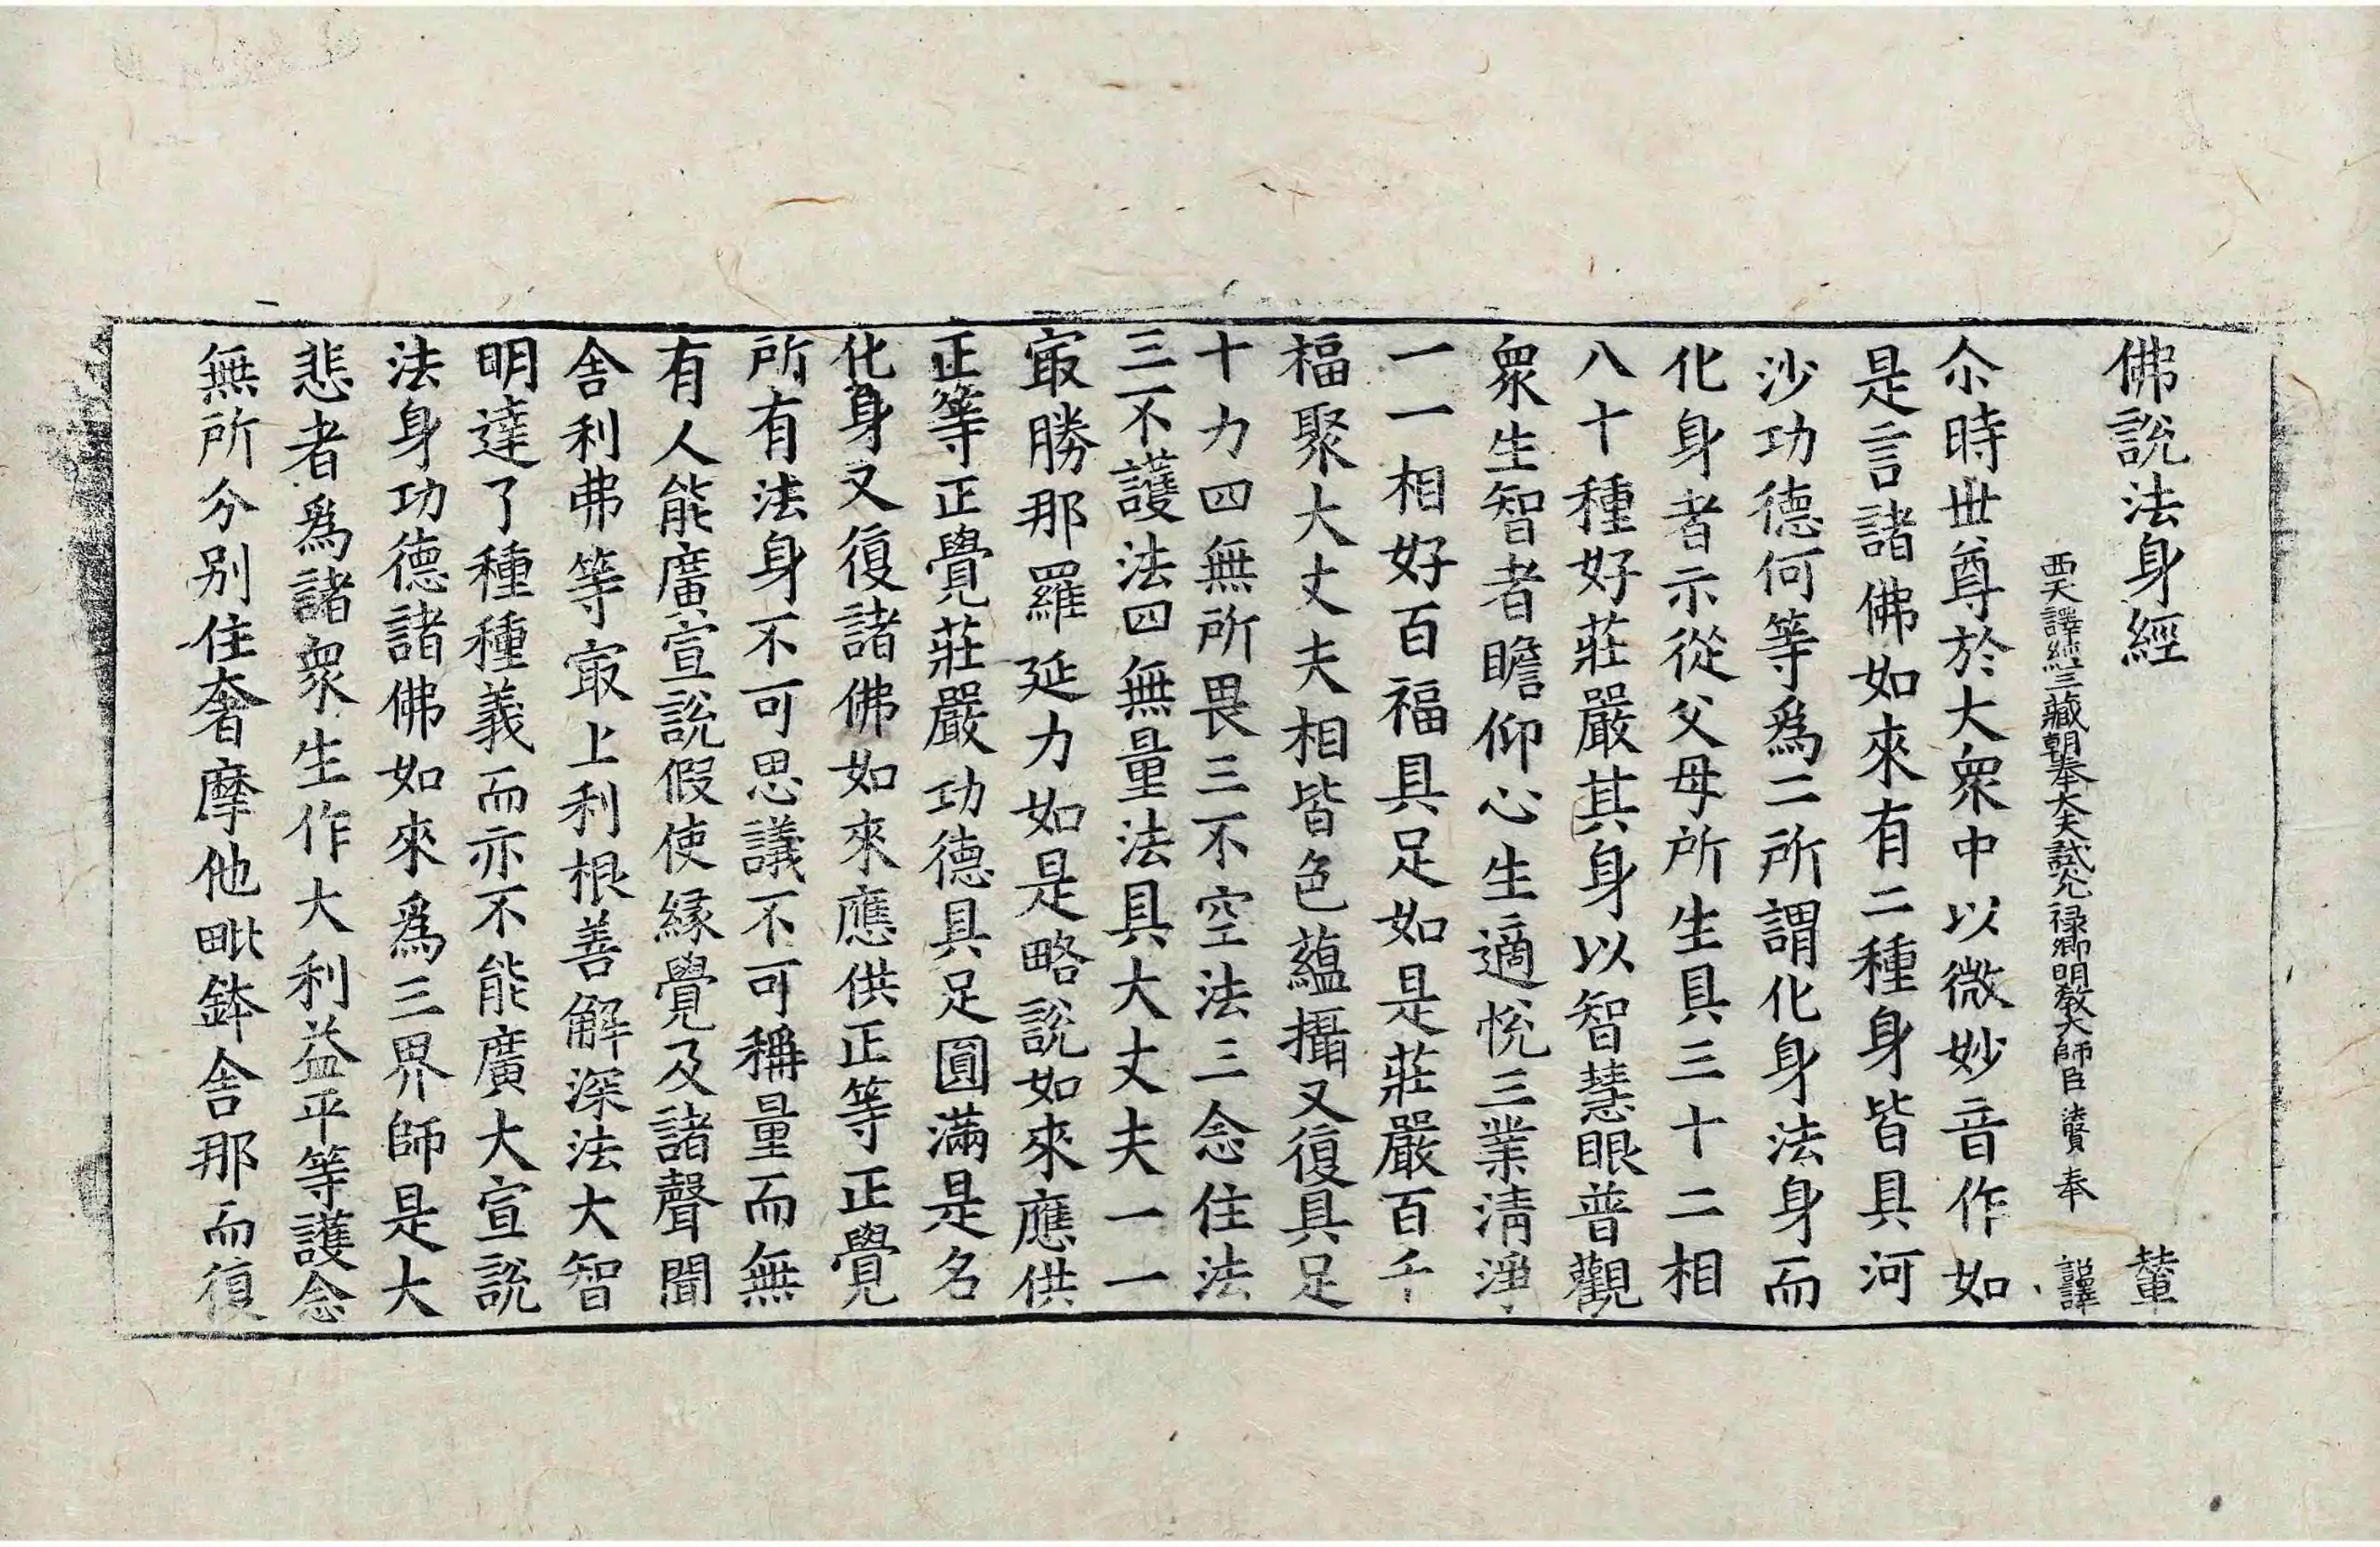 佛說法身經 輦
西天譯經三藏朝奉大夫試光禄卿明教大師臣法賢奉 詔譯
尒時世尊於大衆中以微妙音作如
是言諸佛如來有二種身皆具河
沙功德何等爲二所謂化身法身而
化身者示從父母所生具三十二相
八十種好莊嚴其身以智慧眼普觀
衆生智者瞻仰心生適悅三業清淨
一一相好百福具足如是莊嚴百千
福聚大丈夫相皆色蘊攝又復具足
十力四無所畏三不空法三念住法
三不護法四無量法具大丈夫一一
㝡勝那羅延力如是略說如來應供
正等正覺莊嚴功德具足圓滿是名
化身又復諸佛如來應供正等正覺
所有法身不可思議不可稱量而無
有人能廣宣說假使緣覺及諸聲聞
舍利弗等㝡上利根善解深法大智
明達了種種義而亦不能廣大宣說
法身功德諸佛如來爲三界師是大
悲者爲諸衆生作大利益平等護念
無所分別住奢摩他毗鉢舍那而復